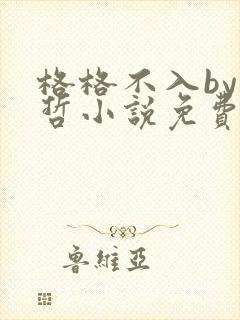 格格不入by
哲小說免費
魯維亞